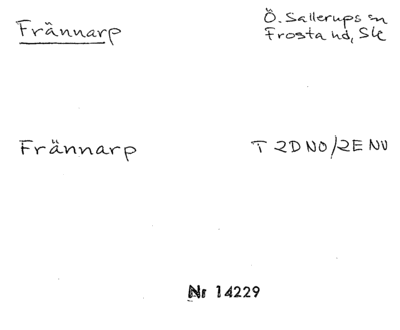 Frännarp
Ö. Sallerups sn
Frosta hd, Sk
Frännarp
T 2D NO/2E NV
Nr 14229